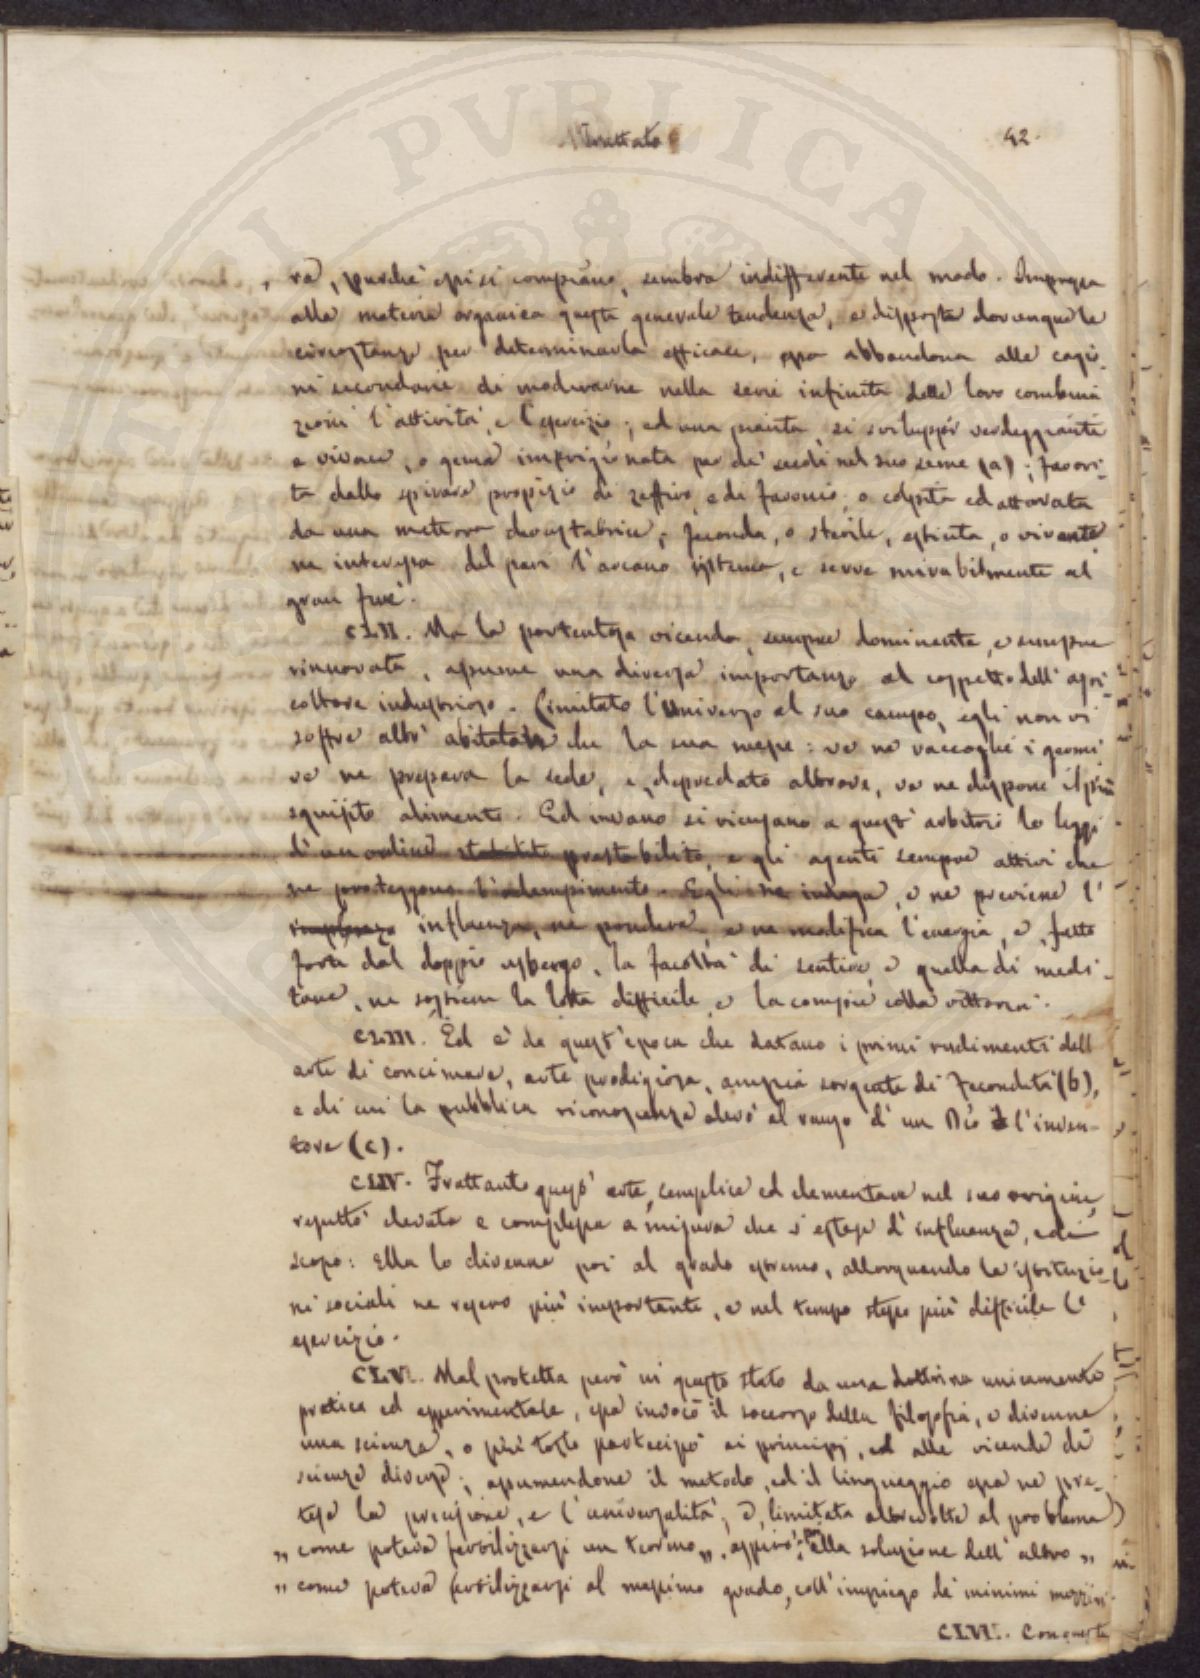 PVBLICAE
Trattato
42.
ra, purchè essi si compiano, sembra indifferente nel modo. Impressa
alla materia organica questa generale tendenza, e disposte dovunque le
circostanze per determinarla efficace, essa abbandona alle cagio-
ni secondarie di moderarne nella serie infinita delle loro combina
zioni l'attività, e l'esercizio; ed una pianta, si sviluppi verdeggiante
e vivace, o gema imprigionata per de' secoli nel suo seme (a); favori-
ta dallo spirare propizio di zeffiro, e di favonio, o colpita ed atterrata
da una meteora devastatrice; feconda, o sterile, estinta, o vivente
ne interessa del pari l'arcano sistema, e serve mirabilmente al
gran fine.
CLII. Ma la portentosa vicenda, sempre dominante, e sempre
rinnovata, assume una diversa importanza al cospetto dell'agri-
coltore industrioso. Limitato l'universo al suo campo, egli non vi
soffre altri abitatori che la sua messe: ve ne raccoglie i germi
ve ne prepara la sede, e, depredato altrove, ve ne dispone il più
squisito alimento. Ed invano si ricusano a quest'arbitrio le leggi
d'un ordine stabilito prestabilito, e gli agenti sempre attivi che
ne proteggono l'adempimento. Egli ne indaga, e ne previene l'
influenza, ne pondera, e ne modifica l'energia, e, fatto
forte dal doppio usbergo, la facoltà di sentire e quella di medi-
tare, ne sostiene la lotta difficile e la compie colla vittoria.
CLIII. Ed è da quest'epoca che datano i primi rudimenti dell
arte di concimare, arte prodigiosa, ampia sorgente di fecondità (b),
e di cui la pubblica riconoscenza elevò al rango d'un Dio l'inven-
tore (c).
CLIV. Frattanto quest'arte, semplice ed elementare nel suo origine,
risultò elevata e complessa a misura che s'estese d'influenza, e di
scopo: Ella lo divenne poi al grado estremo, allorquando le istituzio-
ni sociali ne resero più importante, e nel tempo stesso più difficile l'
esercizio.
CLV. Mal protetta però in questo stato da una dottrina unicamente
pratica ed esperimentale, essa invocò il soccorso della filosofia, e divenne
una scienza, o più tosto partecipò ai principj, ed alle vicende di
scienze diverse; assumendone il metodo, ed il linguaggio essa ne pre-
tese la precisione, e l'universalità; e, limitata altrevolte al problema
„ come poteva fertilizzarsi un terreno „, aspirò alla soluzione dell'altro „
„ come poteva fertilizzarsi al massimo grado, coll'impiego de' minimi mezzi
CLVI. Conquesta